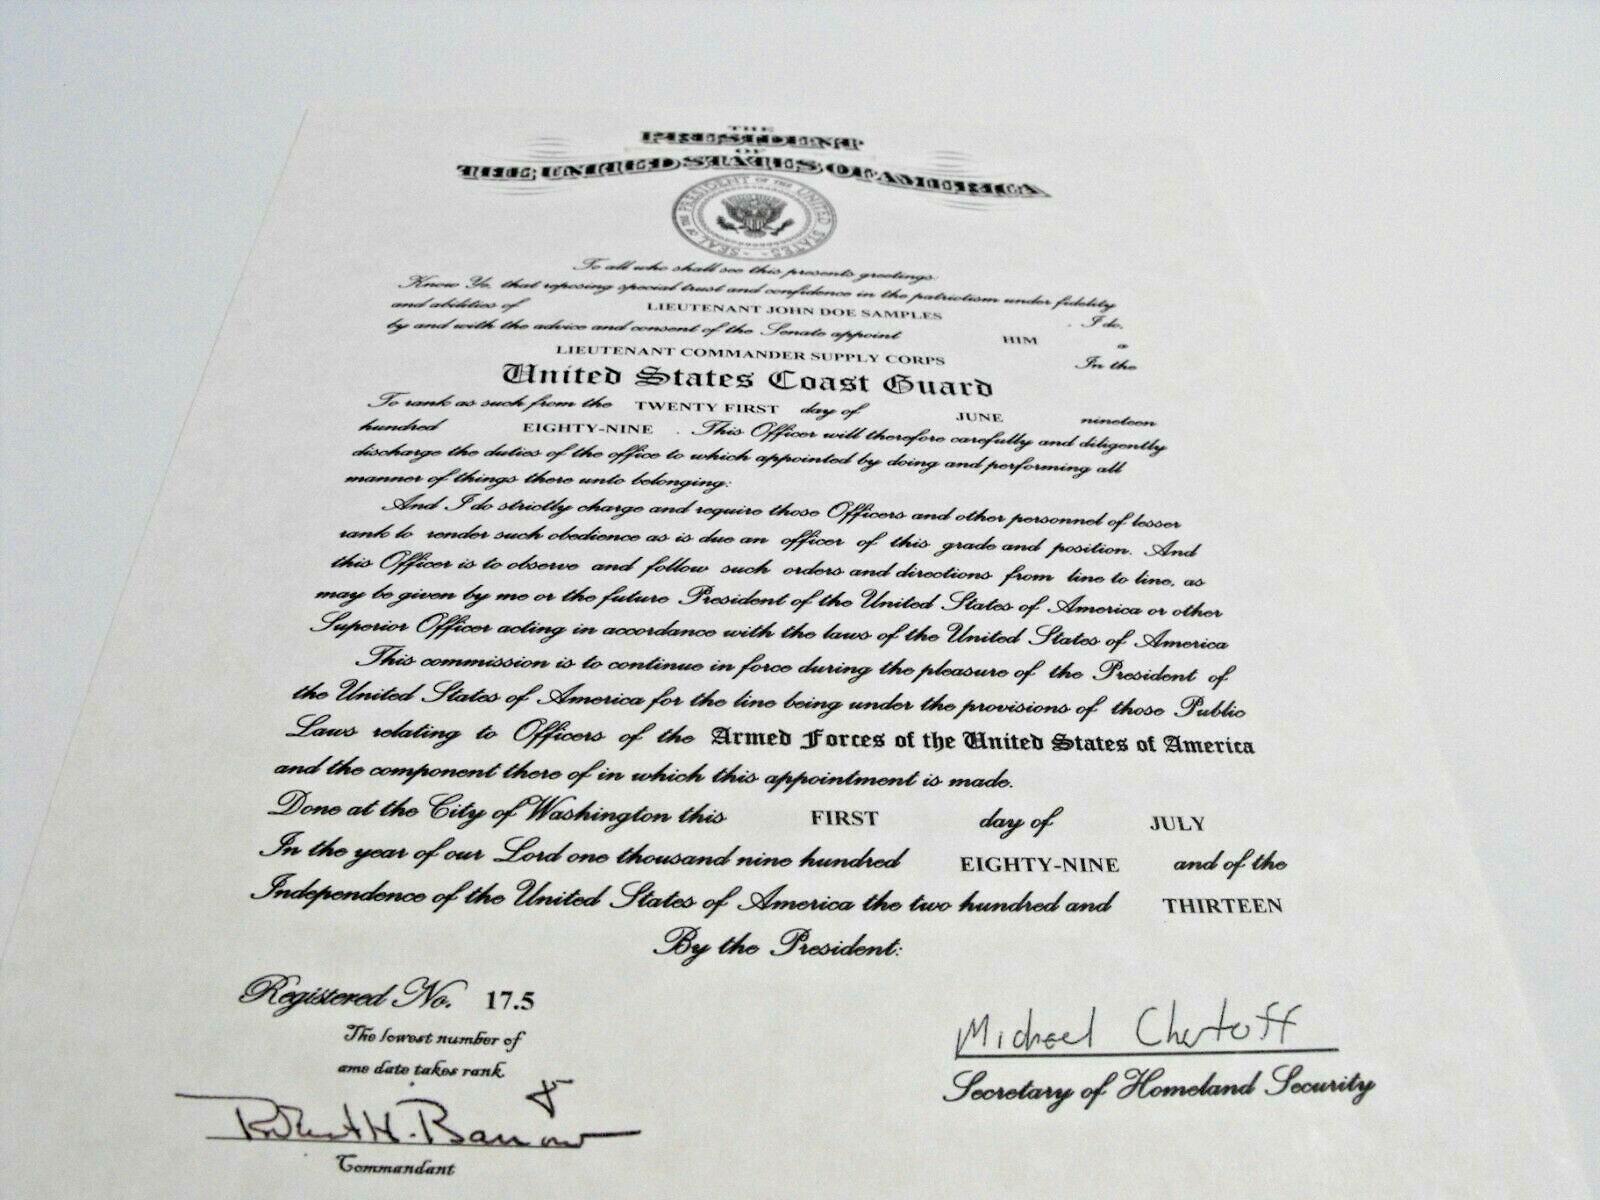 THE
PRESIDENT
OF
THE UNITED STATES OF AMERICA
SEAL OF THE PRESIDENT OF THE UNITED STATES
To all who shall see this presents greetings:
Know Ye, that reposing special trust and confidence in the patriotism under fidelity
and abilities of LIEUTENANT JOHN DOE SAMPLES . I do,
by and with the advice and consent of the Senate appoint HIM a
LIEUTENANT COMMANDER SUPPLY CORPS In the
United States Coast Guard
To rank as such from the TWENTY FIRST day of JUNE nineteen
hundred EIGHTY-NINE . This Officer will therefore carefully and diligently
discharge the duties of the office to which appointed by doing and performing all
manner of things there unto belonging:
And I do strictly charge and require those Officers and other personnel of lesser
rank to render such obedience as is due an officer of this grade and position. And
this Officer is to observe and follow such orders and directions from line to line, as
may be given by me or the future President of the United States of America or other
Superior Officer acting in accordance with the laws of the United States of America
This commission is to continue in force during the pleasure of the President of
the United States of America for the line being under the provisions of those Public
Laws relating to Officers of the Armed Forces of the United States of America
and the component there of in which this appointment is made.
Done at the City of Washington this FIRST day of JULY
In the year of our Lord one thousand nine hundred EIGHTY-NINE and of the
Independence of the United States of America the two hundred and THIRTEEN
By the President:
Registered No. 17.5
The lowest number of
ame date takes rank
Robert H. Barrow
Commandant
Michael Chertoff
Secretary of Homeland Security